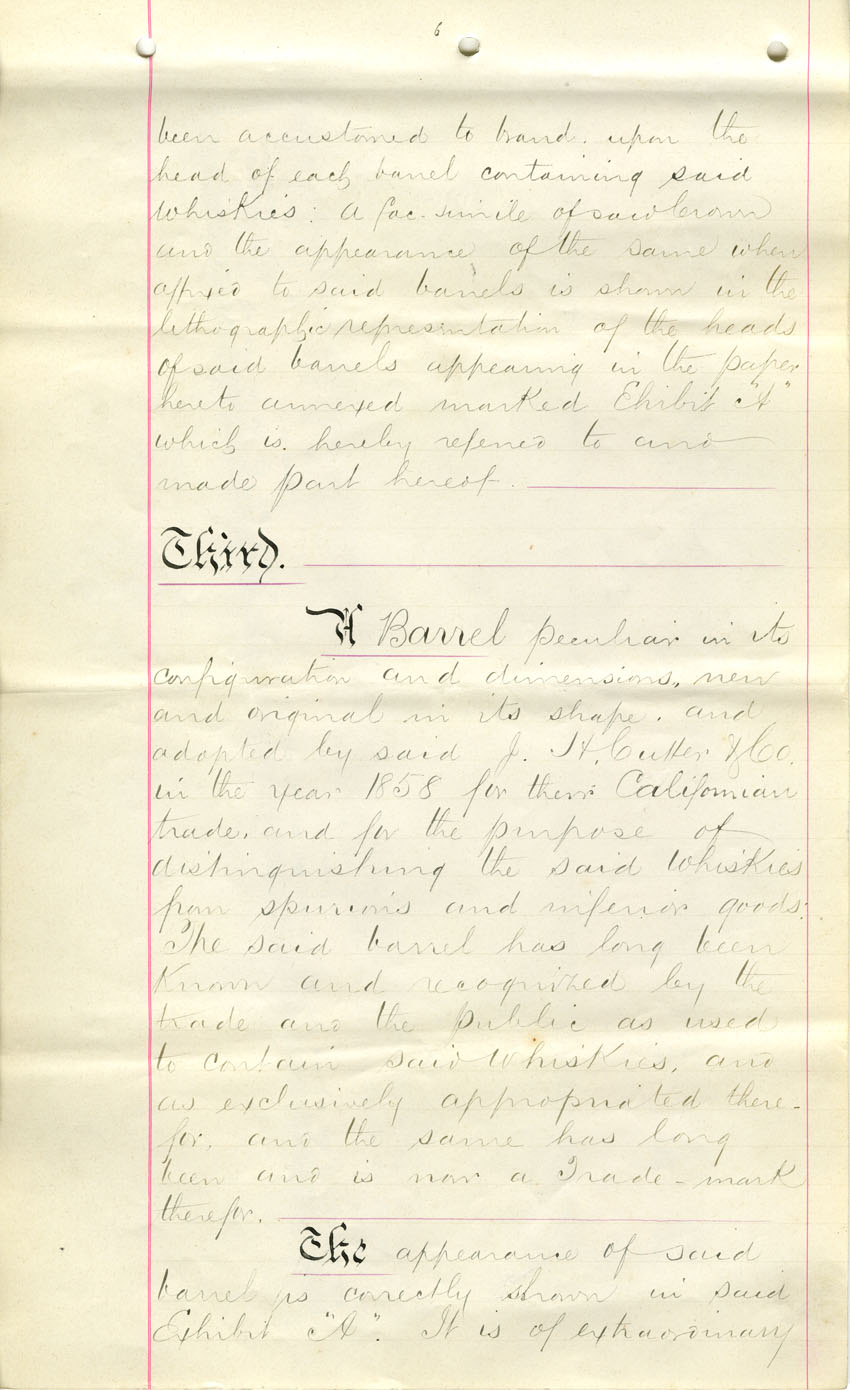 6
been accustomed to brand. upon the
head of each barrel containing said
Whiskies: a fac-simile of said Crown
and the appearance of the same when
affixed to said barrels is shown in the
lithographic representation of the heads
of said barrels appearing in the paper
hereto annexed marked Ehibit "A"
which is. hereby referred to and
made part hereof.
Third.
A Barrel peculiar in its
configuration and dimensions, new
and original in its shape. and
adopted by said J. H. Cutter & Co.
in the year 1858 for their Californian
trade, and for the purpose of
distinguishing the said Whiskies
from spurious and inferior goods:
The said barrel has long been
Known and recognized by the
trade and the public as used
to contain said Whiskies, and
as exclusively appropriated there-
for, and the same has long
been and is now a Trade-mark
therefor.
The appearance of said
barrel is correctly shown in said
Exhibit "A". It is of extraordinary